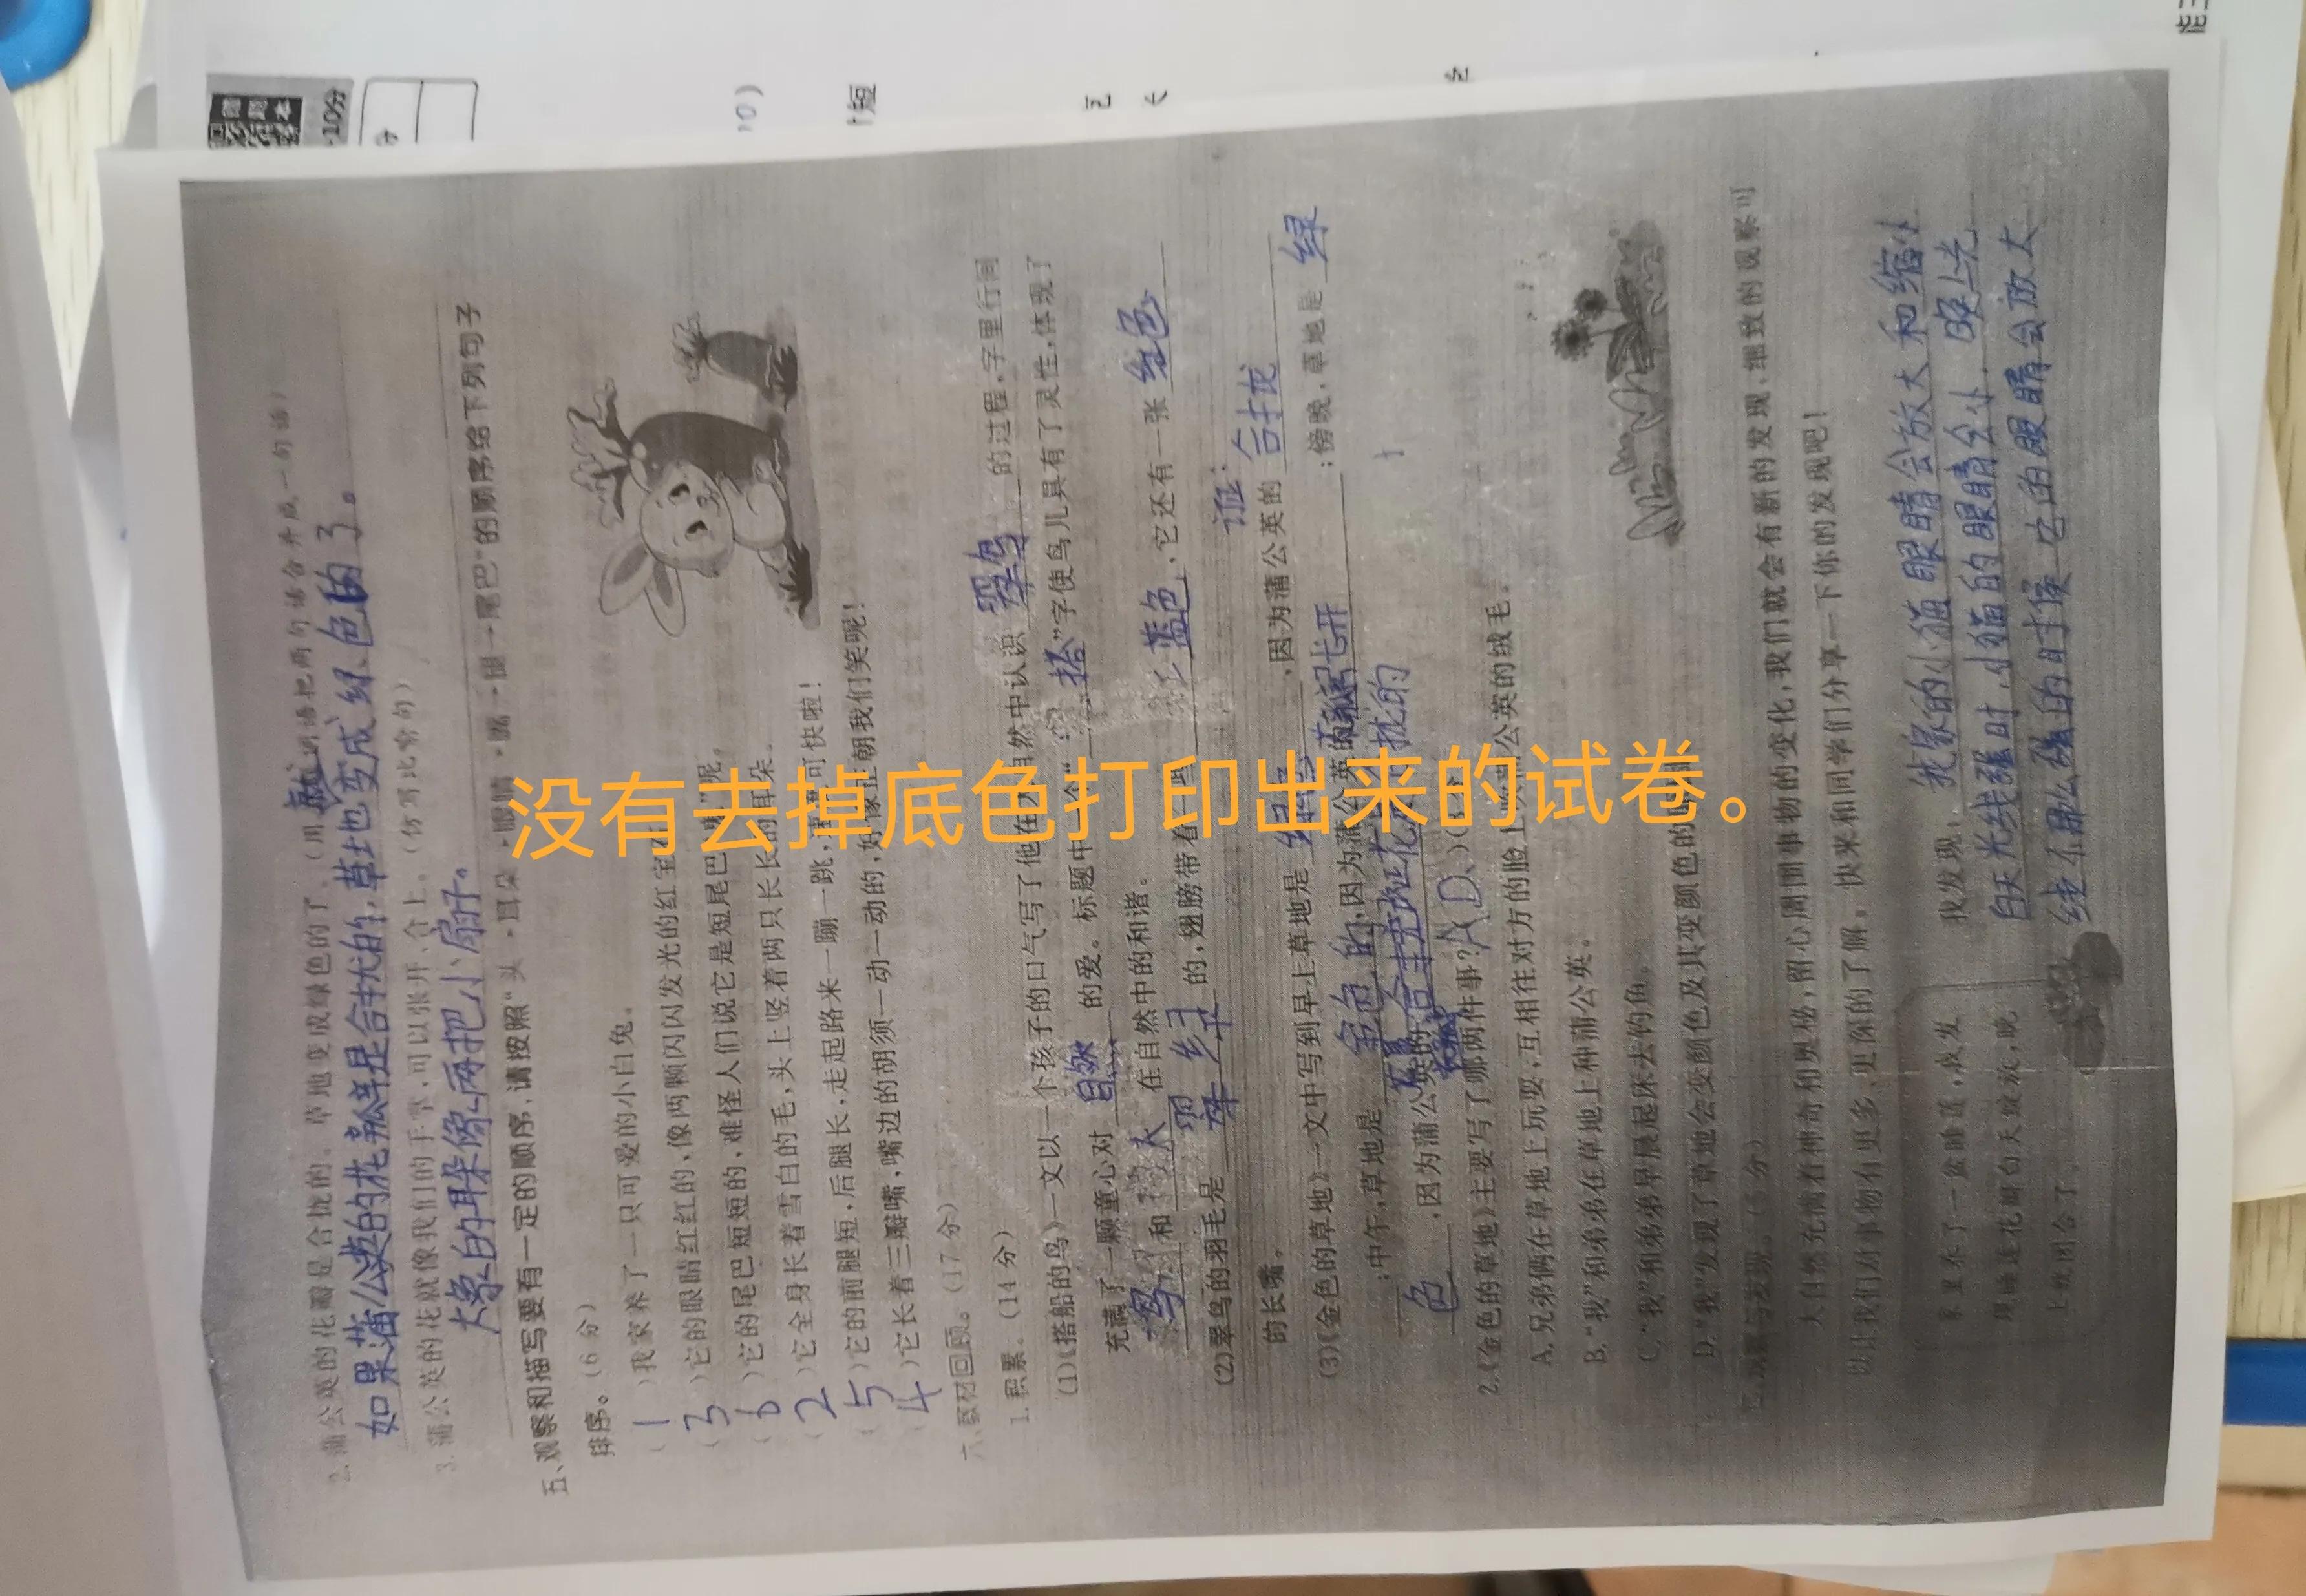 2.蒲公英的花瓣是合拢的。草地变成绿色的了。(用 词语把两句话合并成一句话)
如果蒲公英的花瓣是合拢的,草地也变成绿色的了。
3.蒲公英的花就像我们的手掌,可以张开、合上。(仿写比喻句)
大象的耳朵像两把小扇子。
五、观察和描写要有一定的顺序,请按照“头→耳朵→眼睛→嘴→腿→尾巴”的顺序给下列句子
排序。(6 分)
( 1 )我家养了一只可爱的小白兔。
( 3 )它的眼睛红红的,像两颗闪闪发光的红宝
( 6 )它的尾巴短短的,难怪人们说它是短尾巴 呢。
( 2 )它全身长着雪白的毛,头上竖着两只长长的耳朵。
( 5 )它的前腿短,后腿长,走起路来一蹦一跳, 可快啦!
( 4 )它长着三瓣嘴,嘴边的胡须一动一动的,好像正朝我们笑呢!
六、教材回顾。(17 分)
1.积累。(14 分)
(1)《搭船的鸟》一文以一个孩子的口气写了他在大自然中认识 翠鸟 的过程,字里行间
充满了一颗童心对 自然 的爱。标题中 “ 搭 ”字使鸟儿具有了灵性,体现了
鸟 和 人 在自然中的和谐。
(2)翠鸟的羽毛是 翠绿 的,翅膀带着一些 蓝色 ,它还有一张 红色
的长嘴。
(3)《金色的草地》一文中写到早上草地是 绿色 ,因为蒲公英的 合拢
;中午,草地是 金色的 ,因为蒲公英的 张开 ;傍晚,草地是 绿
色 ,因为蒲公英的 合拢的
2.《金色的草地》主要写了哪两件事?( A D )
A.兄弟俩在草地上玩耍,互相往对方的脸上吹蒲公英的绒毛。
B.“我”和弟弟在草地上种蒲公英。
C.“我”和弟弟早晨起床去钓鱼。
D.“我”发现了草地会变颜色及其变颜色的
七、观察与发现。
大自然充满着神奇和奥秘,留心周围事物的变化,我们就会有新的发现,细致的观察可
以让我们对事物有更多、更深的了解。快来和同学们分享一下你的发现吧!
家里养了一盆睡莲,我发
现睡莲花瓣白天绽放,晚
上就闭合了。
我发现, 我家的小猫眼睛会放大和缩小
白天光线强时,小猫的眼睛会小,晚上光
线不那么强的时候它的眼睛会放大
没有去掉底色打印出来的试卷。